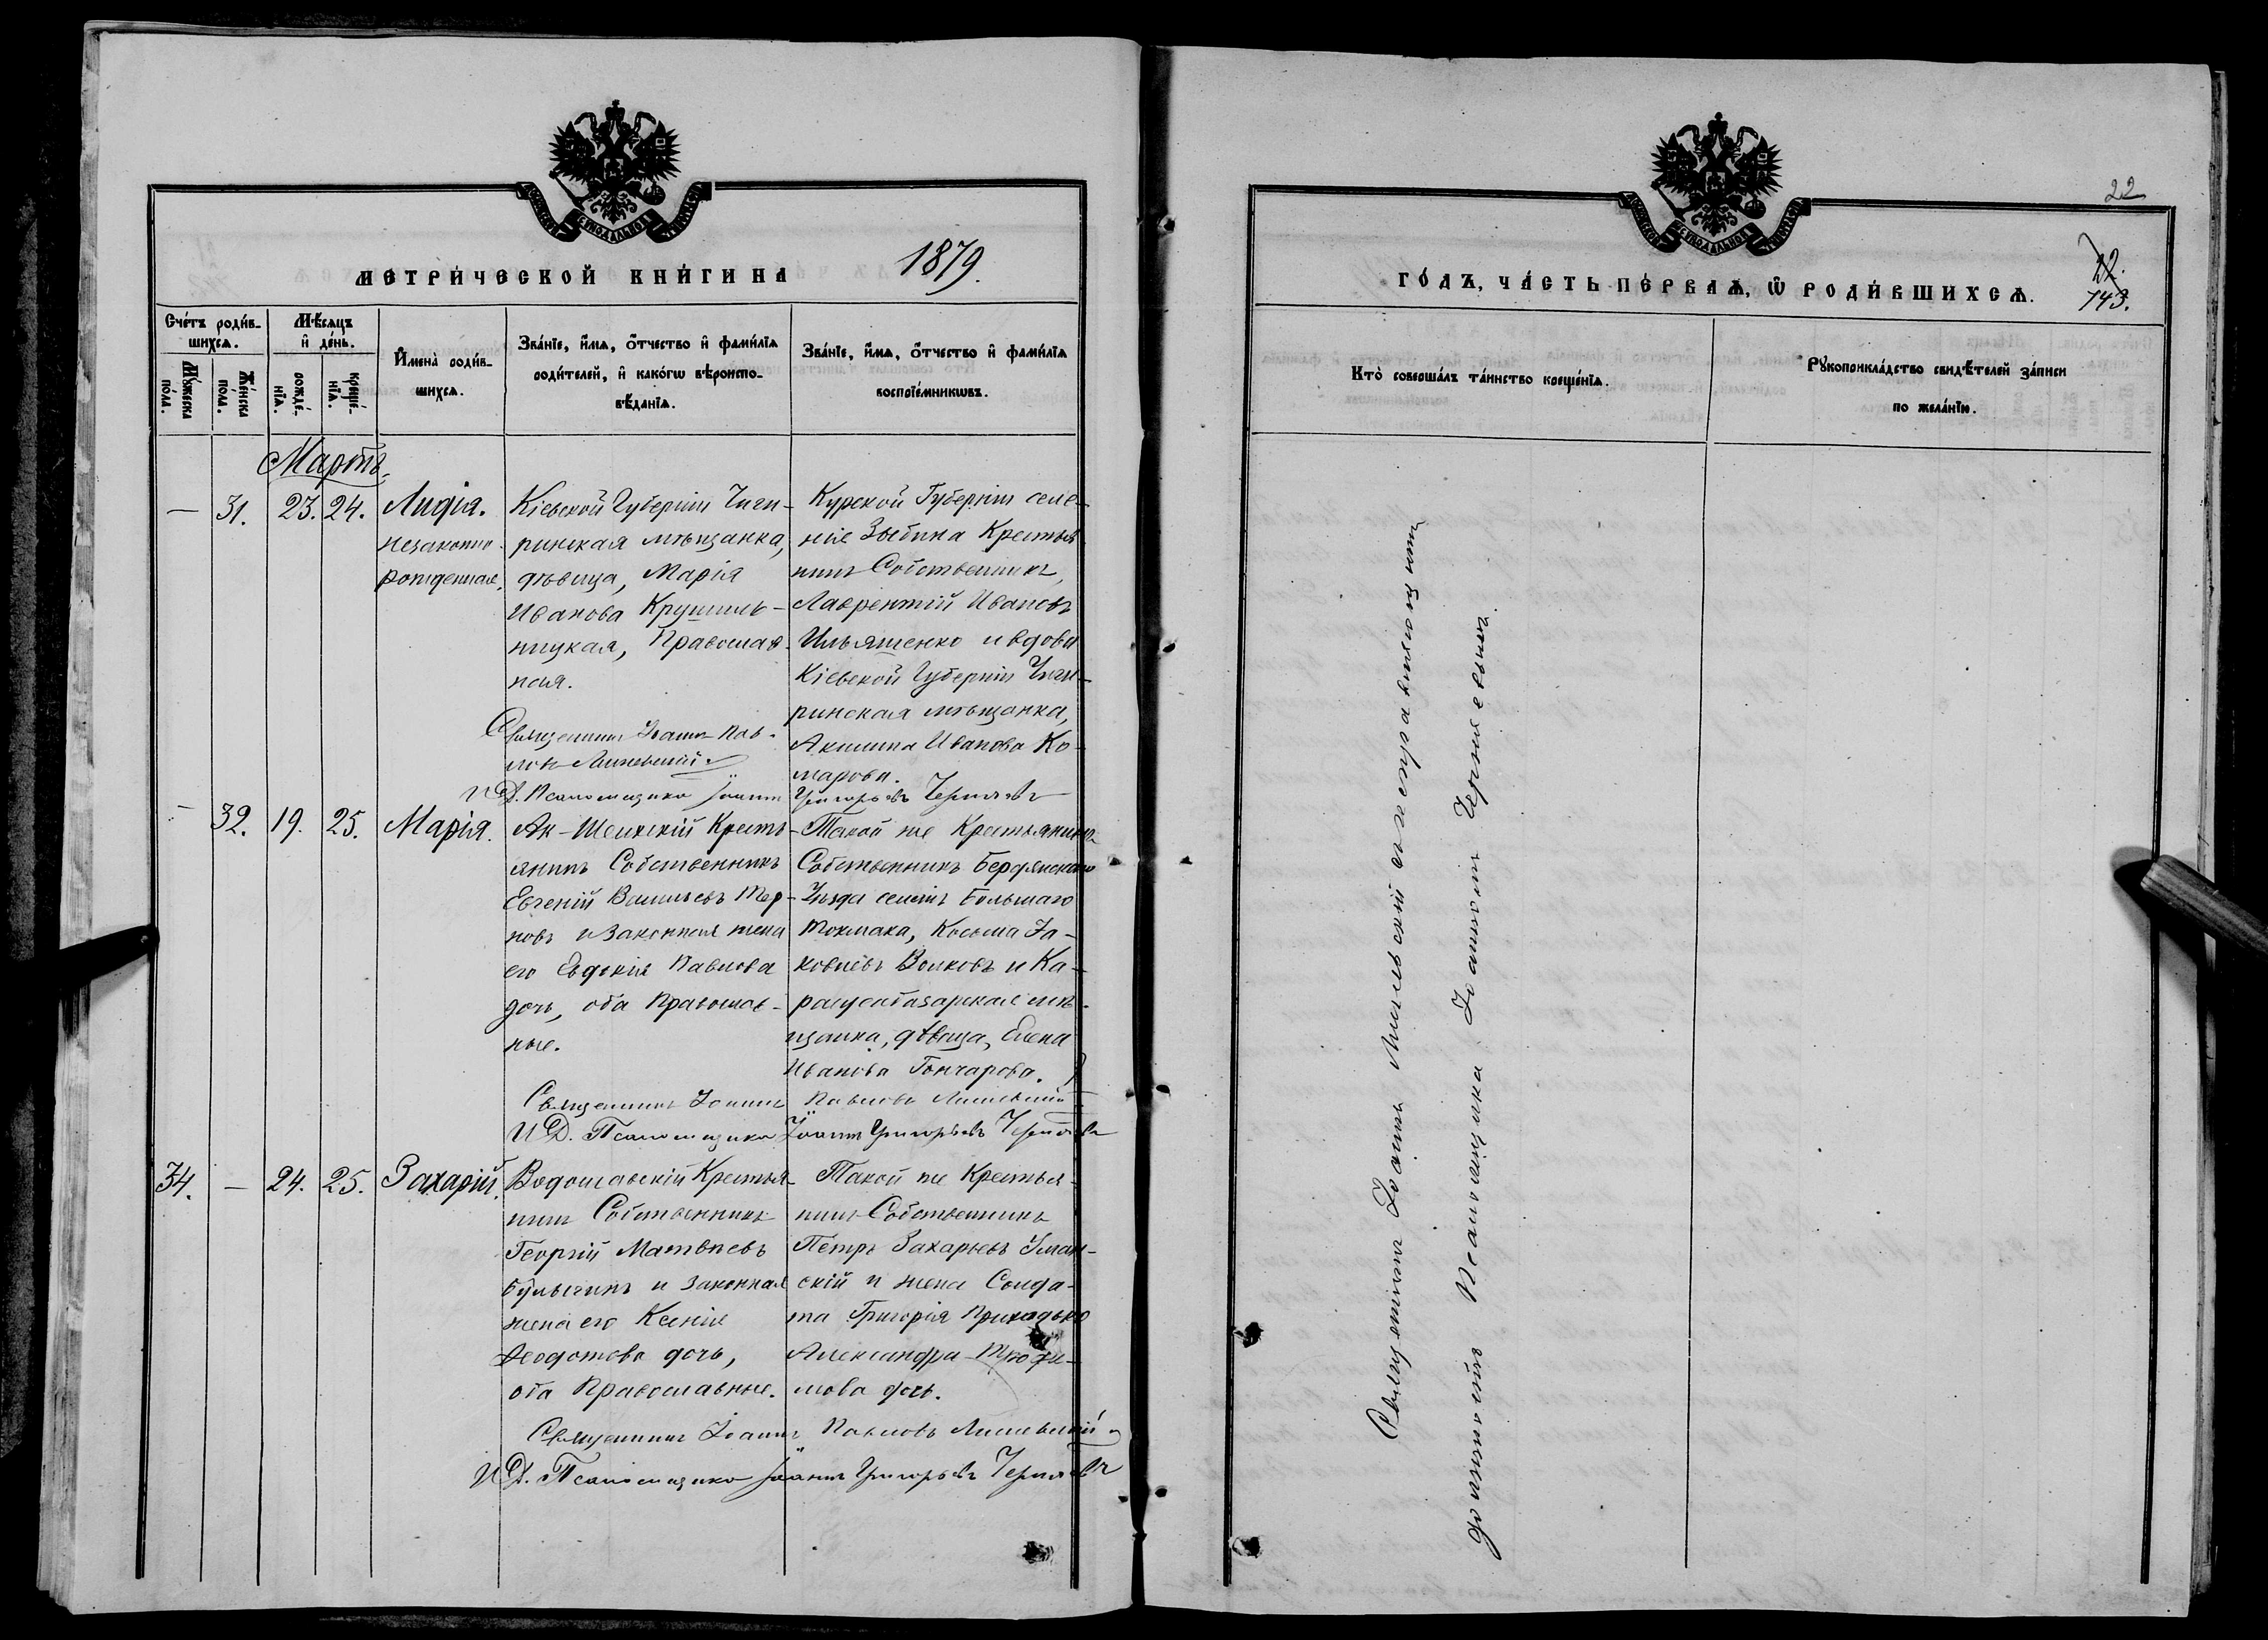 МЕТРИ́ЧЕСКОЙ КНИ́ГИ НА 1879.
Сче́тъ роди́в-
шихсѧ.
Мѹ́жеска
по́ла.
Же́нска
по́ла.
Мѣ́сѧцъ
и҆ де́нь.
рожде́-
нїѧ.
креще́-
нїѧ.
И҆мена̀ роди́в-
шихсѧ.
Зва́нїе, и҆́мѧ, ѻ҆́тчество и҆ фами́лїѧ
роди́телей, и҆ како́гѡ вѣроиспо-
вѣ́данїѧ.
Зва́нїе, и҆́мѧ, ѻ҆́тчество и҆ фами́лїѧ
воспрїе́мникѡвъ.
Мартъ.
— 31. 23. 24.
Лидія.
незаконно-
рожденная.
Кіевской Губерніи Чиги-
ринская мѣщанка,
дѣвица, Марія
Иванова Крушиль-
ницкая, Православ-
ная.
Курской Губерніи селе-
ніе Зыбина Крестья
нинъ Собственникъ,
Лаврентій Ивановъ
Ильяшенко и вдова
Кіевской Губерніи Чиги-
ринская мѣщанка,
Акилина Иванова Ко-
марова.
Священникъ Іоаннъ Пав-
ловъ
И Д. Псаломщика Іоаннъ Григорьевъ Черняевъ
— 32. 19. 25.
Марія.
Ак-Шеихскій Кресть-
янинъ Собственникъ
Евгеній Васильевъ Тер-
новъ и законная жена
его Евдокія Павлова
дочь, оба Православ-
ные.
Такой же Крестьянинъ
Собственникъ Бердянскаго
Уѣзда селенія Большаго
Токмака, Косьма Іа-
ковлевъ Волковъ и Ка-
расубазарская мѣ-
щанка, дѣвица, Елена
Иванова Гончарова.
Священникъ Іоаннъ Павловъ
И Д. Псаломщика Іоаннъ Григорьевъ Черняевъ
34. — 24. 25.
Захарій.
Водославскій Крестья-
нинъ Собственникъ
Георгій Матвѣевъ
Булыгинъ и законная
жена его Ксенія
Ѳеодотова дочь,
оба Православные.
Такой же Крестья-
нинъ Собственникъ
Петръ Захарьевъ Уман-
скій и жена Солда-
та Григорія Приходько
Александра Трофи-
мова дочь.
Священникъ Іоаннъ Павловъ
И Д. Псаломщика Іоаннъ Григорьевъ Черняевъ
22
22.
143.
ГО́ДЪ, ЧА́СТЬ ПЕ́РВАѦ, Ѡ҆ РОДИ́ВШИХСѦ.
Кто̀ соверша́лъ та́инство креще́нїѧ.
Рꙋкоприкла́дство свидѣ́телей за́писи
по жела́нїю.
Священникъ Іоаннъ съ исправляющимъ
должность Псаломщика Іоанномъ Черняевымъ.